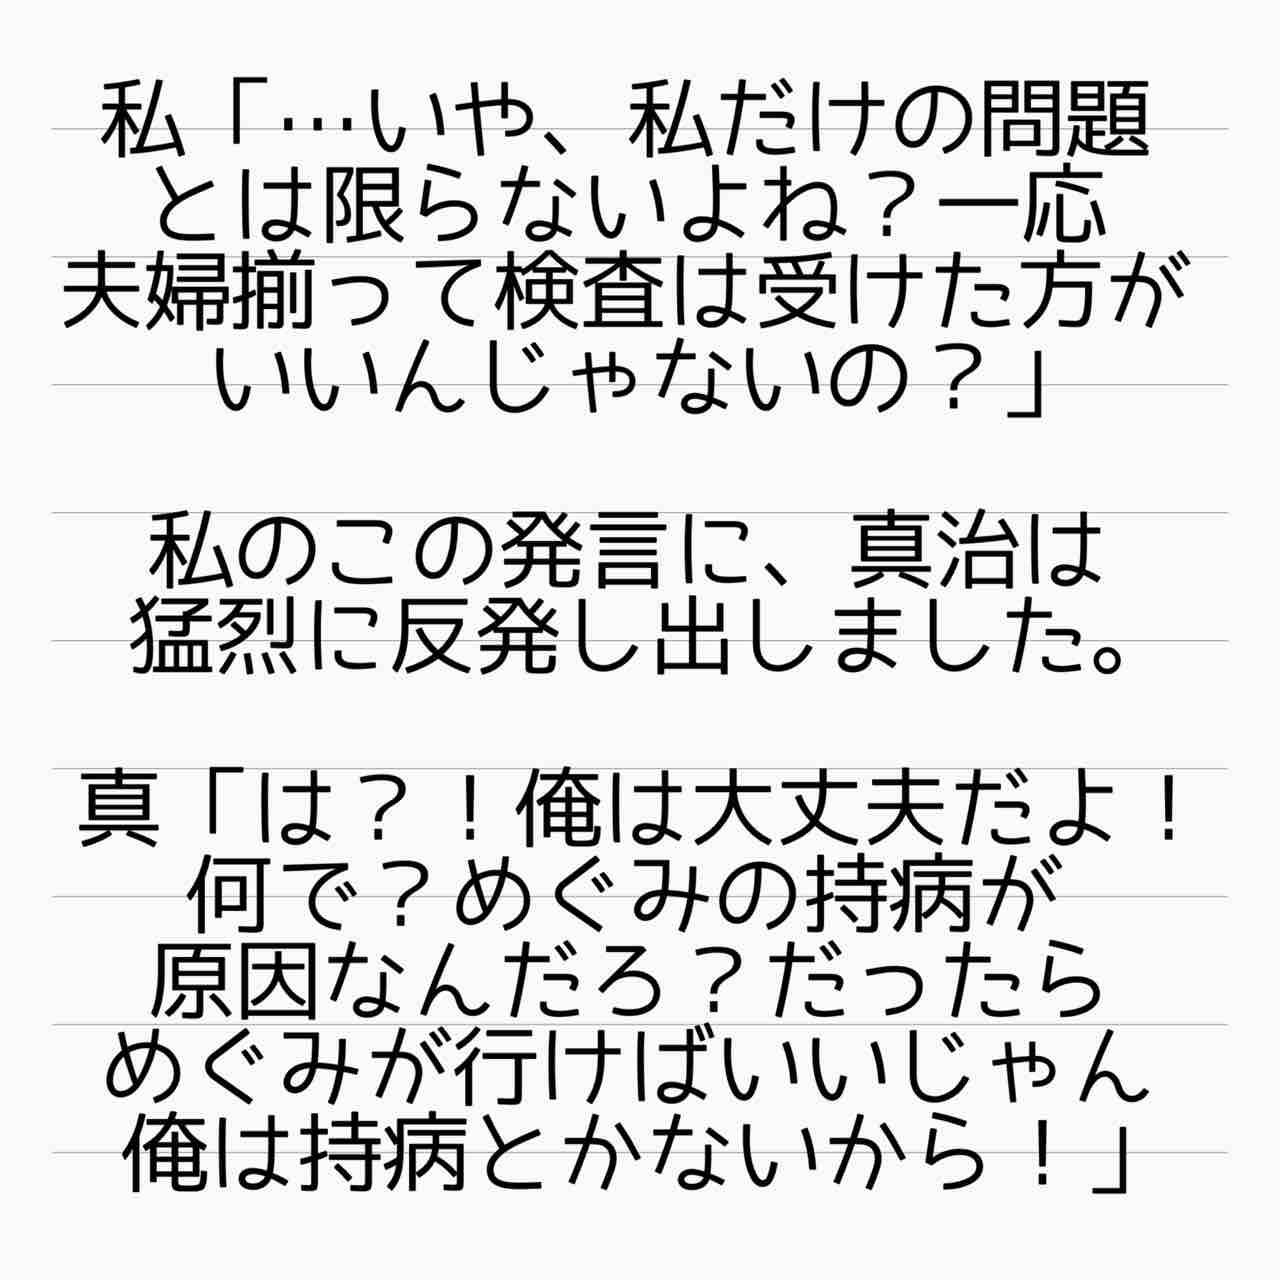 私「…いや、私だけの問題
とは限らないよね？一応
夫婦揃って検査は受けた方が
いいんじゃないの？」
私のこの発言に、真治は
猛烈に反発し出しました。
真「は？！俺は大丈夫だよ！
何で？めぐみの持病が
原因なんだろ？だったら
めぐみが行けばいいじゃん
俺は持病とかないから！」